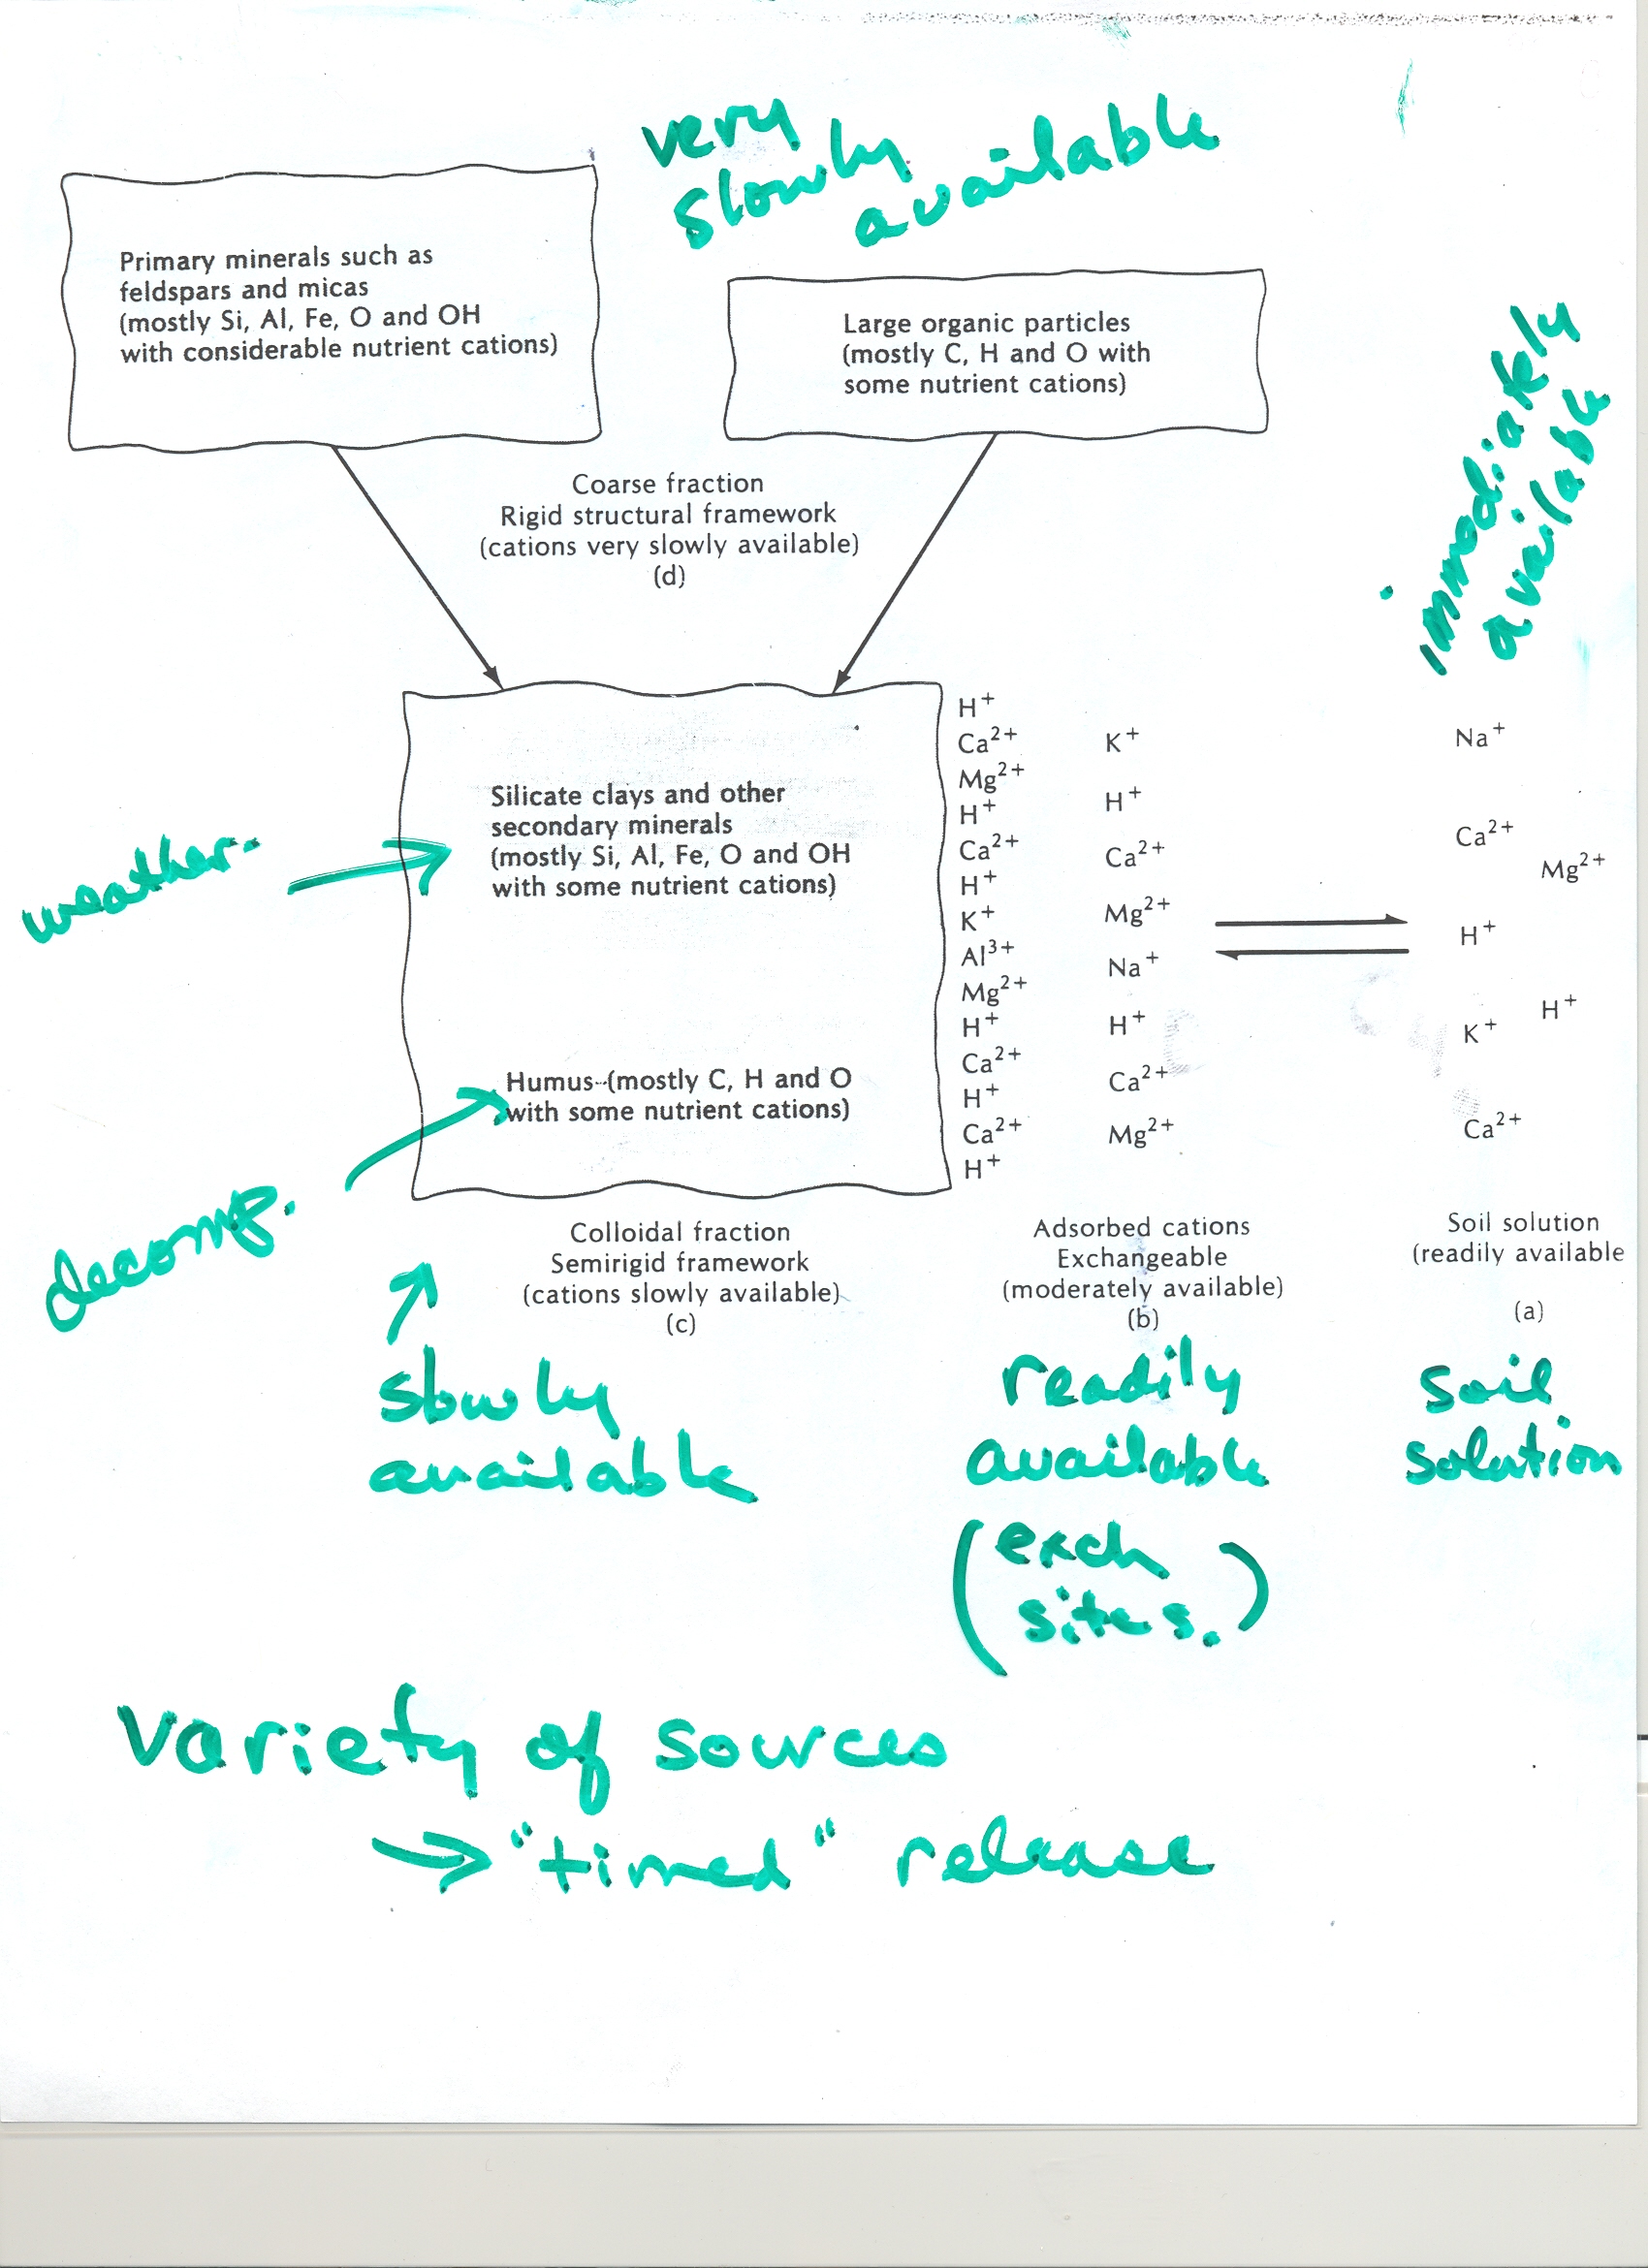 very
slowly
available
Primary minerals such as
feldspars and micas
(mostly Si, Al, Fe, O and OH
with considerable nutrient cations)
Large organic particles
(mostly C, H and O with
some nutrient cations)
immediately
available
Coarse fraction
Rigid structural framework
(cations very slowly available)
(d)
weather.
Silicate clays and other
secondary minerals
(mostly Si, Al, Fe, O and OH
with some nutrient cations)
decomp.
Humus--(mostly C, H and O
with some nutrient cations)
H+
Ca2+
Mg2+
H+
Ca2+
H+
K+
Al3+
Mg2+
H+
Ca2+
H+
Ca2+
H+
K+
H+
Ca2+
Mg2+
Na+
H+
Ca2+
Mg2+
Na+
Ca2+
Mg2+
H+
H+
K+
Ca2+
Colloidal fraction
Semirigid framework
(cations slowly available)
(c)
Adsorbed cations
Exchangeable
(moderately available)
(b)
Soil solution
(readily available
(a)
slowly
available
readily
available
(exch
sites.)
soil
solution
variety of sources
→ "timed" release